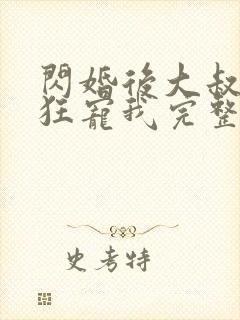 閃婚後大叔
狂寵我完整
史考特